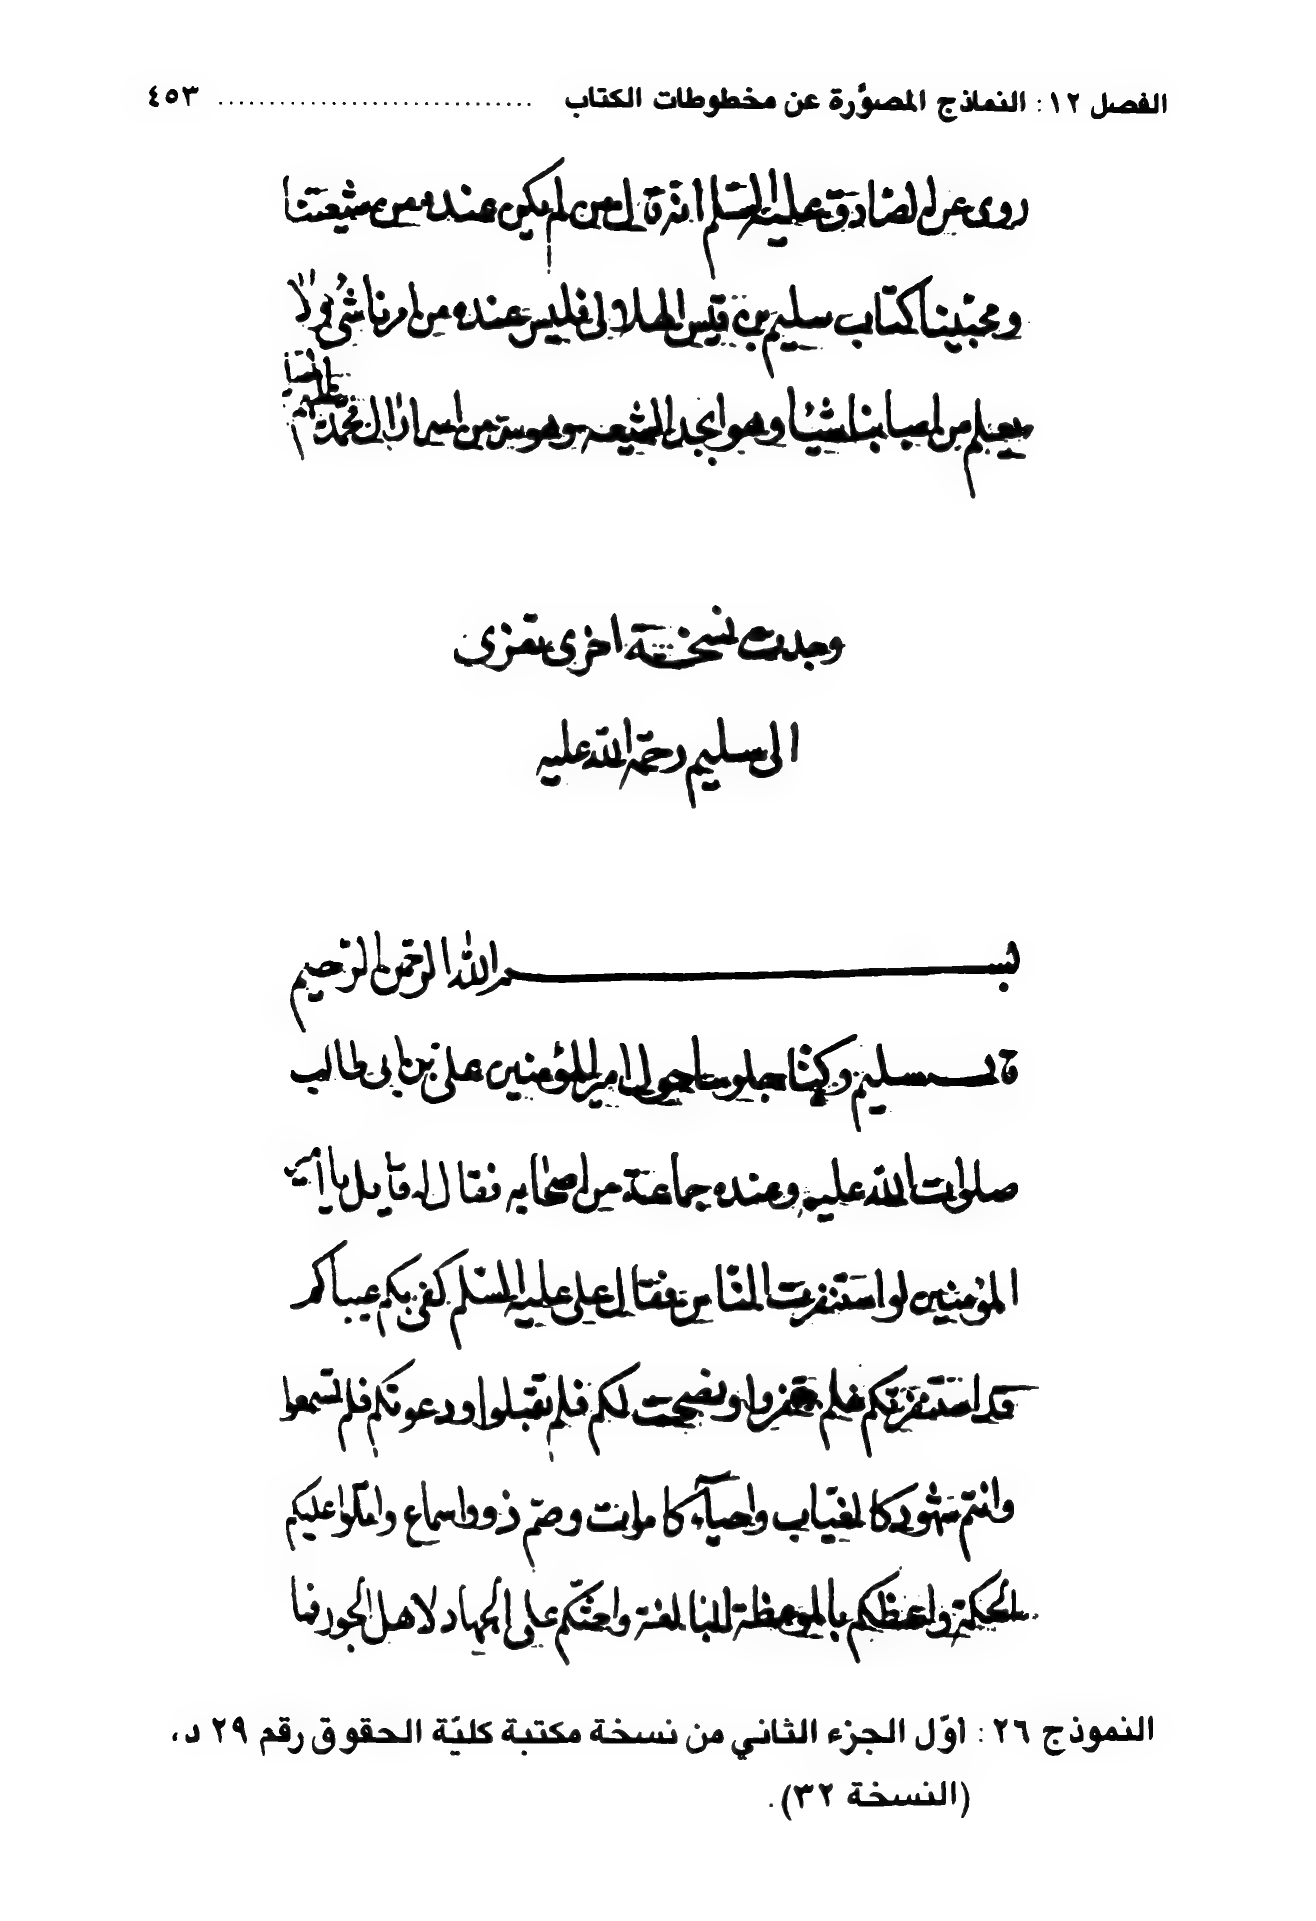 الفصل ١٢: النماذج المصوَّرة عن مخطوطات الكتاب .............................. ٤٥٣
روى عن الصادق عليه السلم انه قال من لم يكن عنده من شيعتنا
ومحبينا كتاب سليم بن قيس الهلالى فليس عنده من امرنا شئ ولا
يعلم من اسبابنا شيئا وهو ابجد الشيعه وهو سر من اسرار ال محمد عليهم
وجدت نسخة اخرى تعزى
الى سليم رحمة الله عليه
بسم الله الرحمن الرحيم
قال سليم وكنا جلوسا حول امير المؤمنين على بن ابى طالب
صلوات الله عليه وعنده جماعة من اصحابه فقال له قايل يا امير
المؤمنين لو استنفرت الناس فقال على عليه السلم كفى بكم عيبا كم
قد استنفرتكم فلم تنفروا ونصحت لكم فلم تقبلوا ودعوتكم فلم تسمعوا
وانتم شهود كالغياب واحياء كاموات وصم ذوو اسماع واتلوا عليكم
الحكمة واعظكم بالموعظة البالغة واحثكم على الجهاد لاهل الجور فما
النموذج ٢٦: أوّل الجزء الثاني من نسخة مكتبة كليّة الحقوق رقم ٢٩ د،
(النسخة ٣٢).